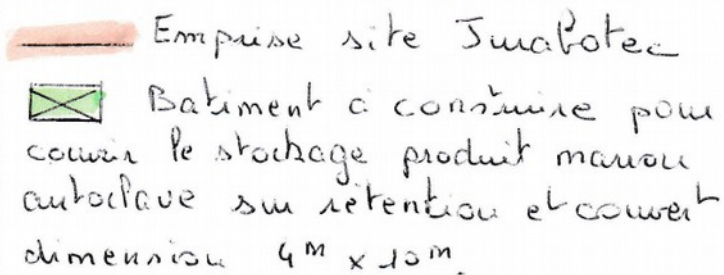 Emprise site Jurabotec
Batiment à construire pour
couvrir le stockage produit marron
autoclave sur rétention et couvert
dimension 4m x 10m.